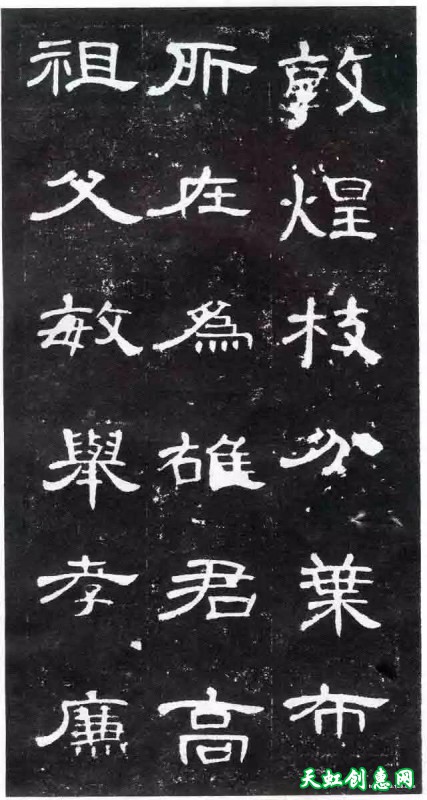 敦煌枝分葉布
所在為雄君高
祖父敏舉孝廉
天虹创惠网